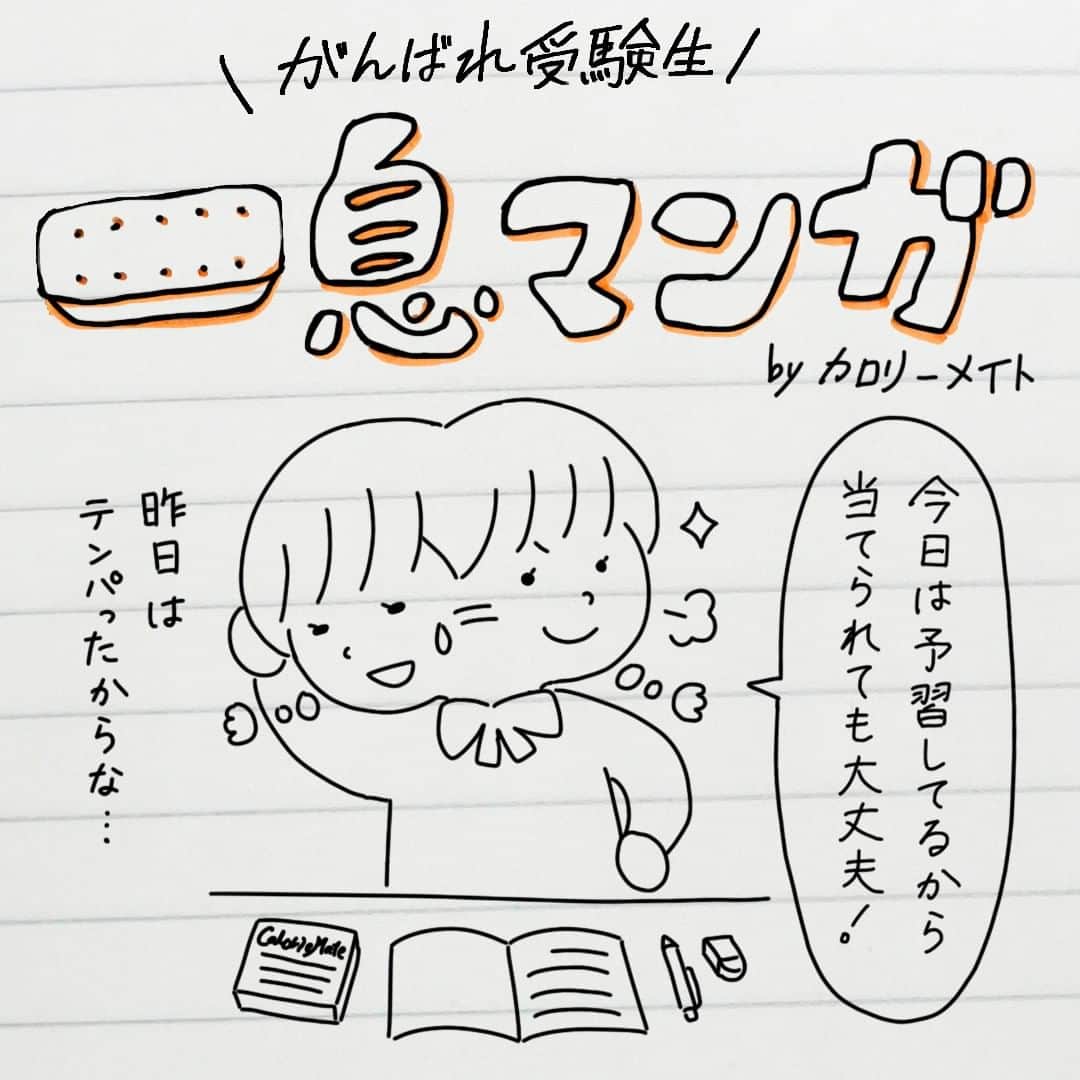 がんばれ受験生
一息マンガ
by カロリーメイト
今日は予習してるから
当てられても大丈夫!
昨日は
テンパったからな…
CalorieMate